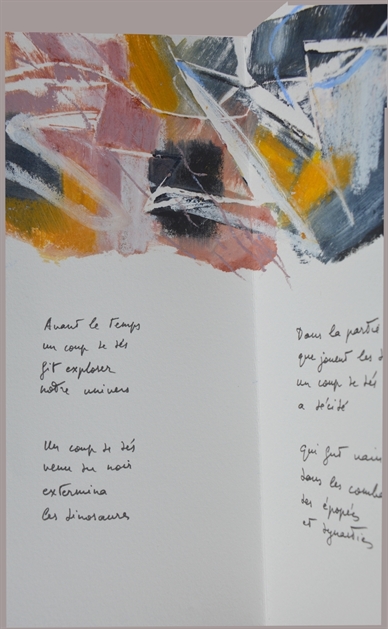 Avant le temps
un coup de dés
fit explorer
notre univers
Un coup de dés
venu du noir
extermina
les dinosaures
Dans la partie
que jouent les
un coup de dés
a décidé
Qui fut
dans les
des épopées
et dynasties